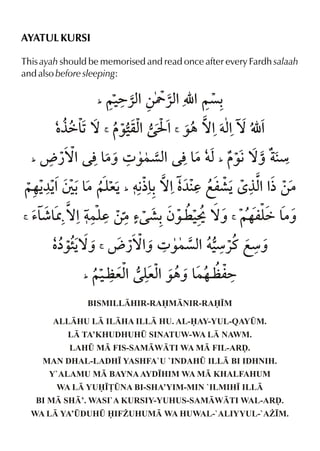 AYATUL KURSI
This ayah should be memorised and read once after every Fardh salaah
and also before sleeping:
بِسْمِ اللهِ الرَّحْمٰنِ الرَّحِيْمِ ۔
اَللهُ لَآ اِلٰهَ اِلَّا هُوَ ۚ اَلْحَىُّ الْقَيُّوْمُ ۚ لَا تَاْخُذُهٗ
سِنَةٌ وَّلَا نَوْمٌ ۔ لَهٗ مَا فِى السَّمٰوٰتِ وَمَا فِى الْاَرْضِ ۔
مَنْ ذَا الَّذِىْ يَشْفَعُ عِنْدَهٗٓ اِلَّا بِاِذْنِهٖ ۔ يَعْلَمُ مَا بَيْنَ اَيْدِيْهِمْ
وَمَا خَلْفَهُمْ ۚ وَلَا يُحِيْطُوْنَ بِشَىْءٍ مِّنْ عِلْمِهٖٓ اِلَّا بِمَاشَآءَ ۚ
وَسِعَ كُرْسِيُّهُ السَّمٰوٰتِ وَالْاَرْضَ ۚ وَلَايَئُوْدُهٗ
حِفْظُهُمَا وَهُوَ الْعَلِىُّ الْعَظِيْمُ ۔
BISMILLĀHIR-RAḤMĀNIR-RAḤĪM
ALLĀHU LĀ ILĀHA ILLĀ HU. AL-ḤAY-YUL-QAYŪM.
LĀ TA’KHUDHUHŪ SINATUW-WA LĀ NAWM.
LAHŪ MĀ FIS-SAMĀWĀTI WA MĀ FIL-ARḌ.
MAN DHAL-LADHĪ YASHFA`U `INDAHŪ ILLĀ BI IDHNIH.
Y`ALAMU MĀ BAYNA AYDĪHIM WA MĀ KHALFAHUM
WA LĀ YUḤĪṬŪNA BI-SHA’YIM-MIN `ILMIHĪ ILLĀ
BI MĀ SHĀ’. WASI`A KURSIY-YUHUS-SAMĀWĀTI WAL-ARḌ.
WA LĀ YA’ŪDUHŪ ḤIFẒUHUMĀ WA HUWAL-`ALIYYUL-`AẒĪM.